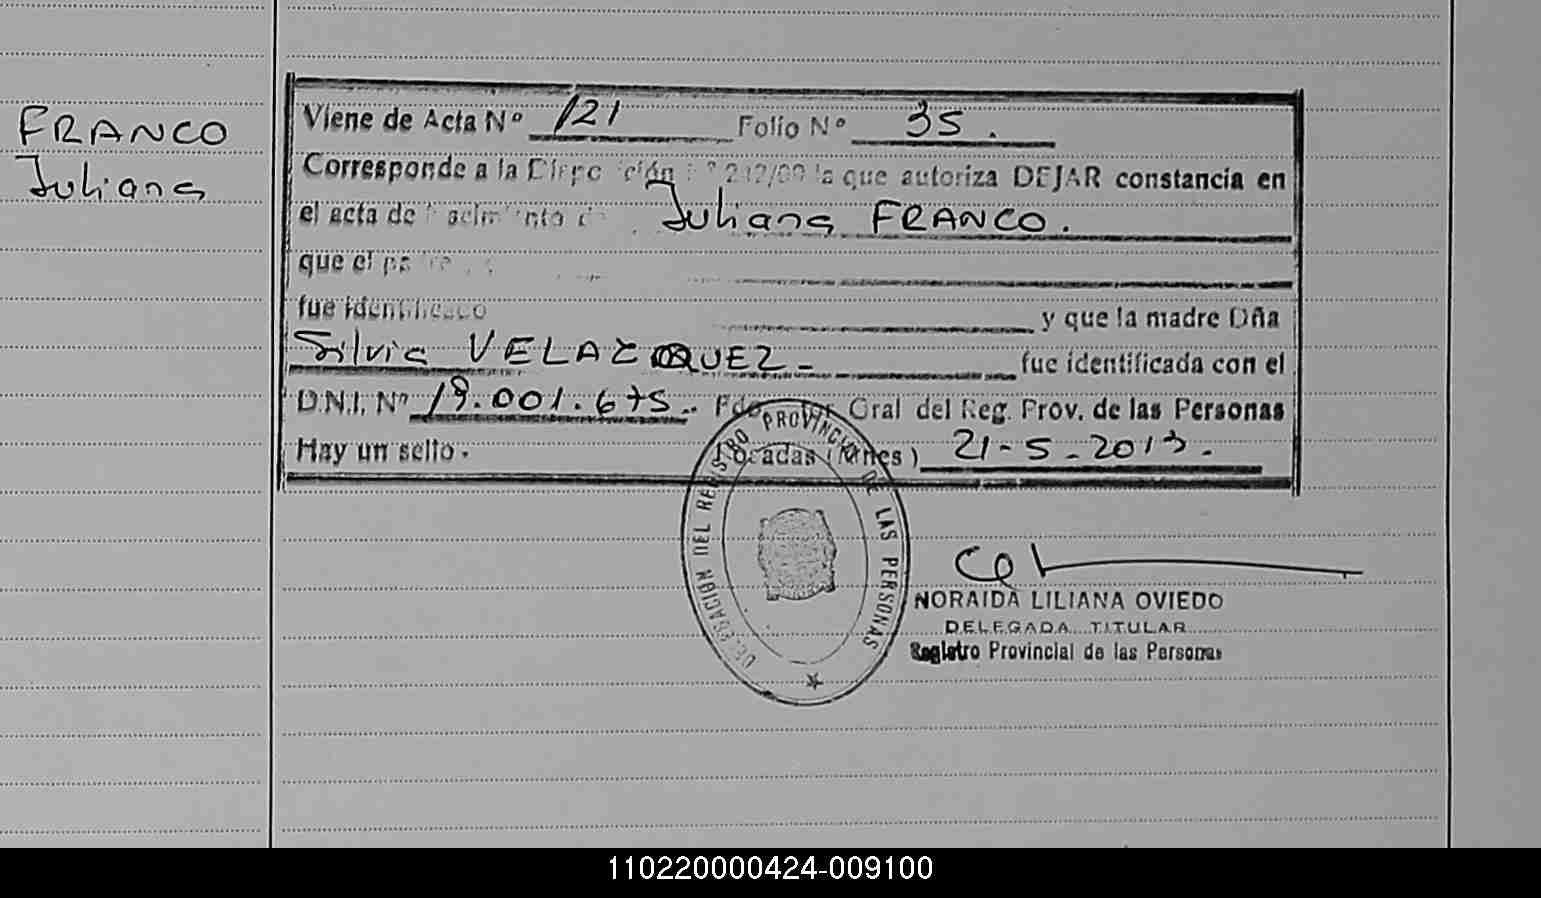 FRANCO
Juliana
Viene de Acta Nº 121 Folio Nº 35.
Corresponde a la Nº 242/09 la que autoriza DEJAR constancia en
el acta de Nacimiento de Juliana FRANCO.
que el padre
fue identificado y que la madre Dña
Silvia VELAZQUEZ- fue identificada con el
D.N.I. Nº 19.001.675. Gral del Reg. Prov. de las Personas
Hay un sello. 21-5-2013.
DELEGACION DEL REGISTRO PROVINCIAL DE LAS PERSONAS
NORAIDA LILIANA OVIEDO
DELEGADA TITULAR
Registro Provincial de las Personas
110220000424-009100